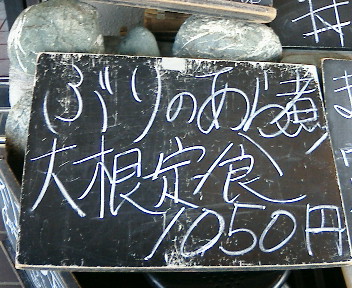 ぶりのあら煮
大根定食
1050円
ま